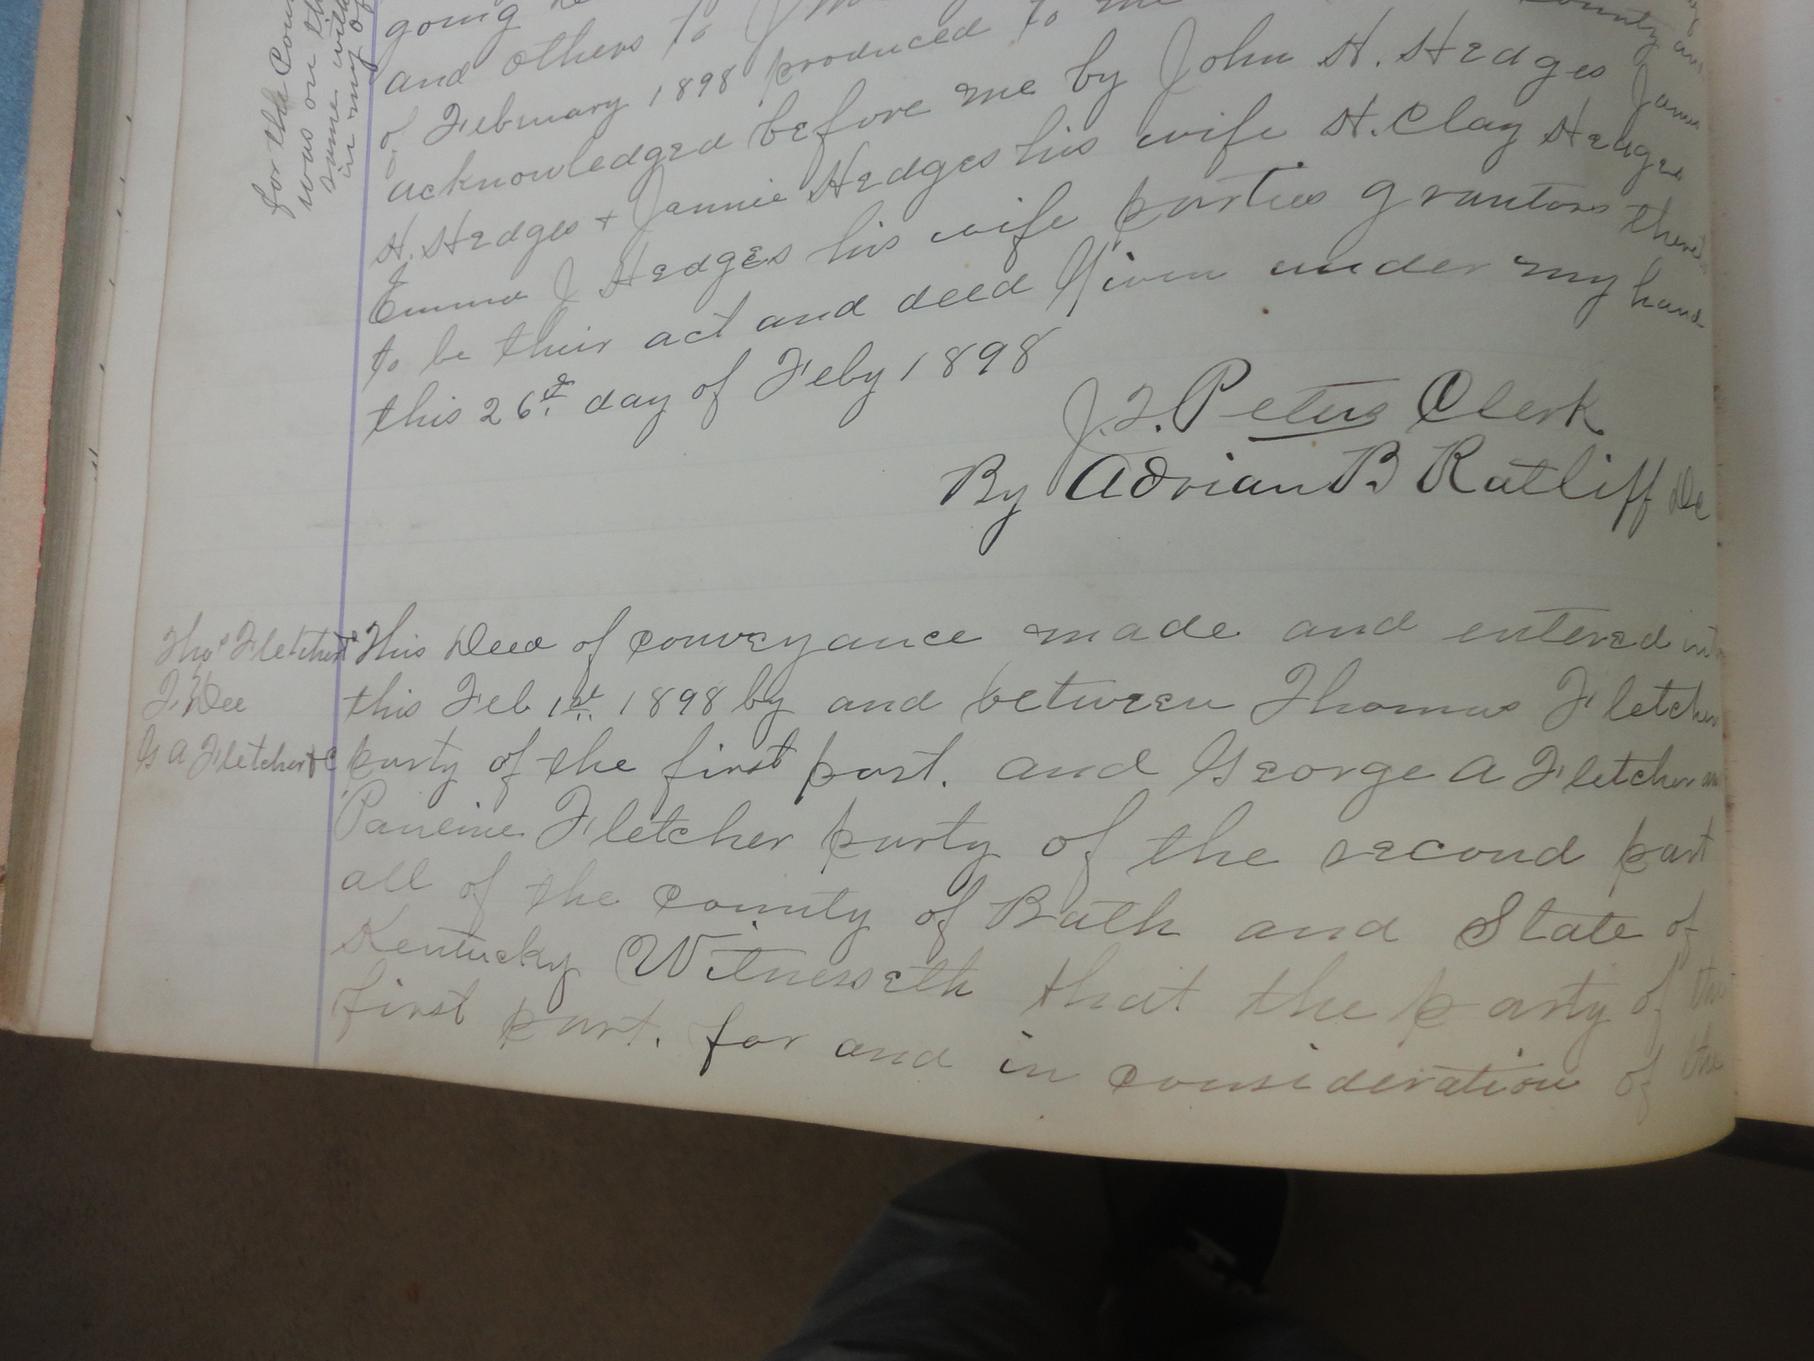 for the Coun
was on th
same with
in my of
going
and others to
of February 1898 produced to me County and
acknowledged before me by John H. Hedges James
H. Hedges + Fannie Hedges his wife H. Clay Hedges
Emma J Hedges his wife parties grantors thereto
to be their act and deed Given under my hand
this 26th day of Feby 1898
J. T. Peters Clerk
By Adrian B Ratliff Dc
Thos Fletcher
To Dee
G A Fletcher +c
This Deed of conveyance made and entered into
this Feb 1st 1898 by and between Thomas Fletcher
party of the first part. and George A Fletcher an
Fletcher party of the second part
all of the county of Bath and State of
Kentucky Witnesseth that the party of the
first part. for and in consideration of the